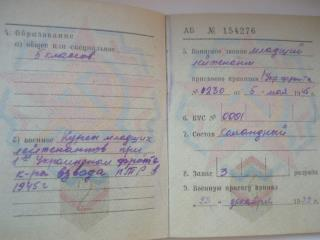 4. Образование
а) общее или специальное
5 классов
б) военное Курсы младших
лейтенантов при
1 Украинском фронте
к-ра взвода ПТР в
1945 г
АБ № 154276
5. Воинское звание младший
лейтенант
присвоено приказом
№ 0230 от 5 мая 1945 г.
6. ВУС № 0001
7. Состав командный
8. Запас 3 разряда
9. Военную присягу принял
23 декабря